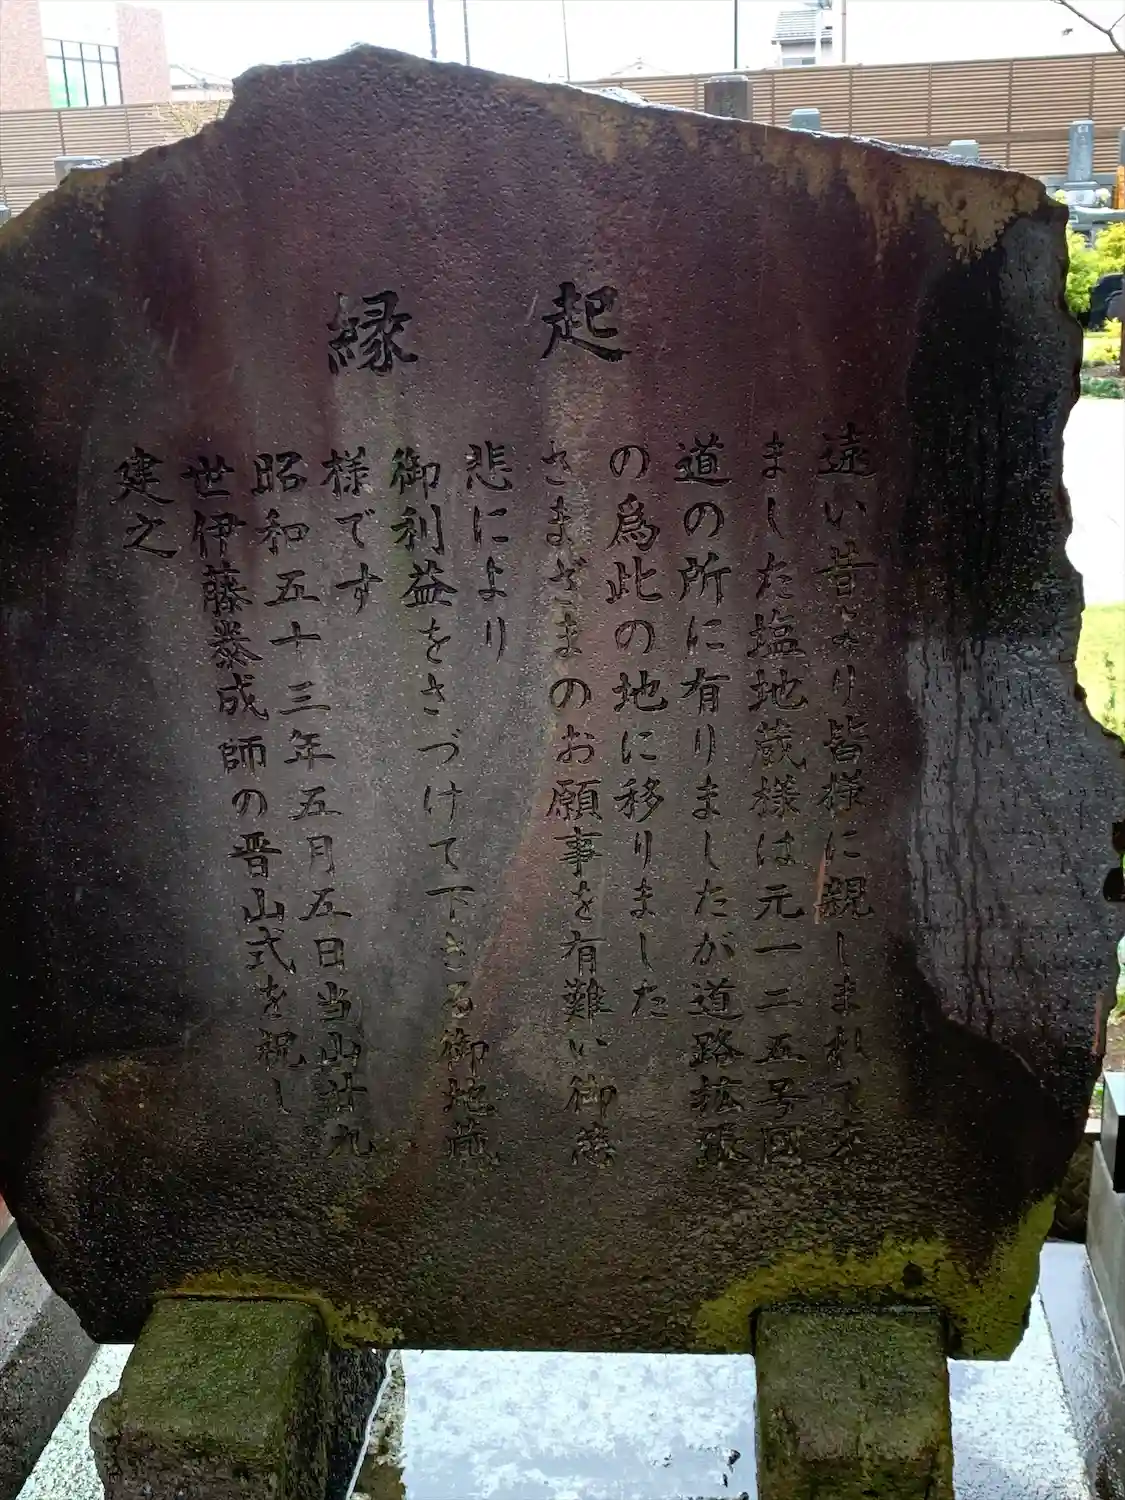 起縁
遠い昔より皆様に親しまれて来
ました塩地蔵様は元一二五号國
道の所に有りましたが道路拡張
の為此の地に移りました
さまざまのお願事を有難い御慈
悲により
御利益をさづけて下さる御地蔵
様です
昭和五十三年五月五日当山廿九
世伊藤泰成師の晋山式を祝し
建之